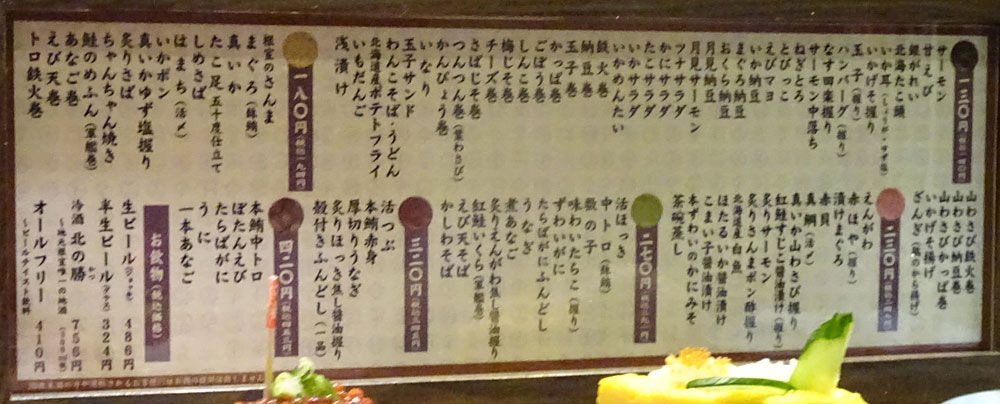 一三〇円（税込一四〇円）
サーモン
甘えび
銀がれい
北海たこ頭
いか耳（しょうが・ゆず塩）
いかげそ握り
玉子（握り）
ハンバーグ（握り）
なす四楽握り
サーモン中落ち
ねぎとろ
とびっこ
えびマヨ
いか納豆
まぐろ納豆
おくら納豆
月見納豆
月見サーモン
ツナサラダ
かにサラダ
たこサラダ
いかサラダ
いかめんたい
鉄火巻
納豆巻
玉子巻
かっぱ巻
ごぼう巻
チーズ巻
梅じそ巻
さばじそ巻
つんつん巻（茎わさび）
かんぴょう巻
いなり
玉子サンド
わんこそば・うどん
北海道産ポテトフライ
いもだんご
浅漬け
一八〇円（税込一九四円）
根室のさんま
まぐろ（鉢鮪）
真いか
たこ足五十度仕立て
しめさば
はまち（活〆）
いかポン
真いかゆず塩握り
炙りさば
ちゃんちゃん焼き
鮭のめふん（軍艦巻）
あなご巻
えび天巻
トロ鉄火巻
山わさび鉄火巻
山わさび納豆巻
山わさびかっぱ巻
いかげそ揚げ
ざんぎ（鶏のから揚げ）
二三〇円
えんがわ
赤ほや（握り）
漬けまぐろ
赤貝
真鯛（活〆）
真いか山わさび握り
紅鮭すじこ醤油漬け（握り）
炙りサーモン
炙りさんまポン酢握り
北海道産白魚
ほたるいか醤油漬け
こまい子醤油漬け
本ずわいのかにみそ
茶碗蒸し
二七〇円（税込二九一円）
活ほっき
中トロ（鉢鮪）
数の子
味わいたらこ（握り）
ずわいがに
たらばがにふんどし
うなぎ
煮あなご
炙りえんがわ蒸し醤油握り
紅鮭いくら（軍艦巻）
えび天そば
かしわそば
三二〇円（税込三四五円）
活つぶ
本鮪赤身
厚切りうなぎ
炙りほっき蒸し醤油握り
殻付きふんどし（一品）
四二〇円（税込四五三円）
本鮪中トロ
ぼたんえび
たらばがに
うに
一本あなご
お飲物（税込価格）
生ビール（ジョッキ） 486円
半生ビール（グラス） 324円
冷酒 北の勝 756円
～地元根室唯一の地酒
オールフリー 410円
～ビールテイスト飲料